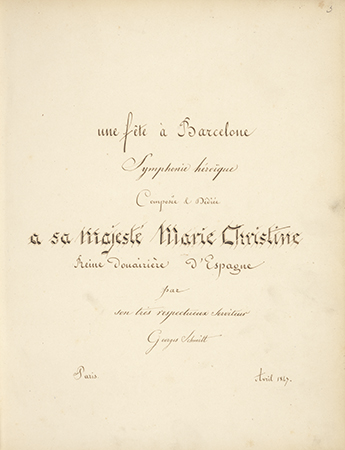 3
une fête à Barcelone
Symphonie héroïque
Composée & Dédiée
a sa Majesté Marie Christine
Reine Douairière D'Espagne
par
son très respectueux Serviteur
Georges Schmitt
Paris. Avril 1847.